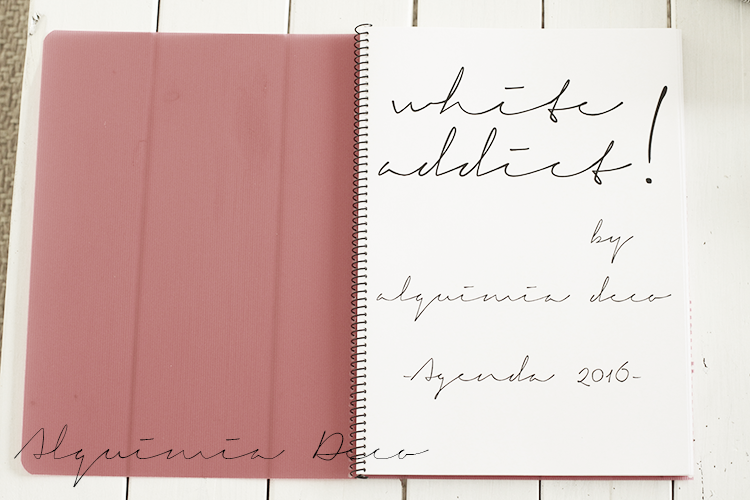 white
addict!
by
alquimia deco
-Agenda 2016-
Alquimia Deco